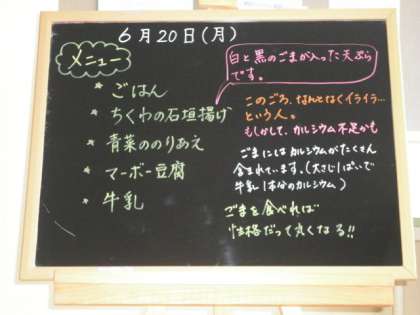 6月20日(月)
メニュー
* ごはん
* ちくわの石垣揚げ
* 青菜ののりあえ
* マーボー豆腐
* 牛乳
白と黒のごまが入った天ぷら
です。
このごろ、なんとなくイライラ…
という人。
もしかして、カルシウム不足かも
ごまにはカルシウムがたくさん
含まれています。(大さじ1ぱいで
牛乳1本分のカルシウム)
ごまを食べれば
性格だって丸くなる!!